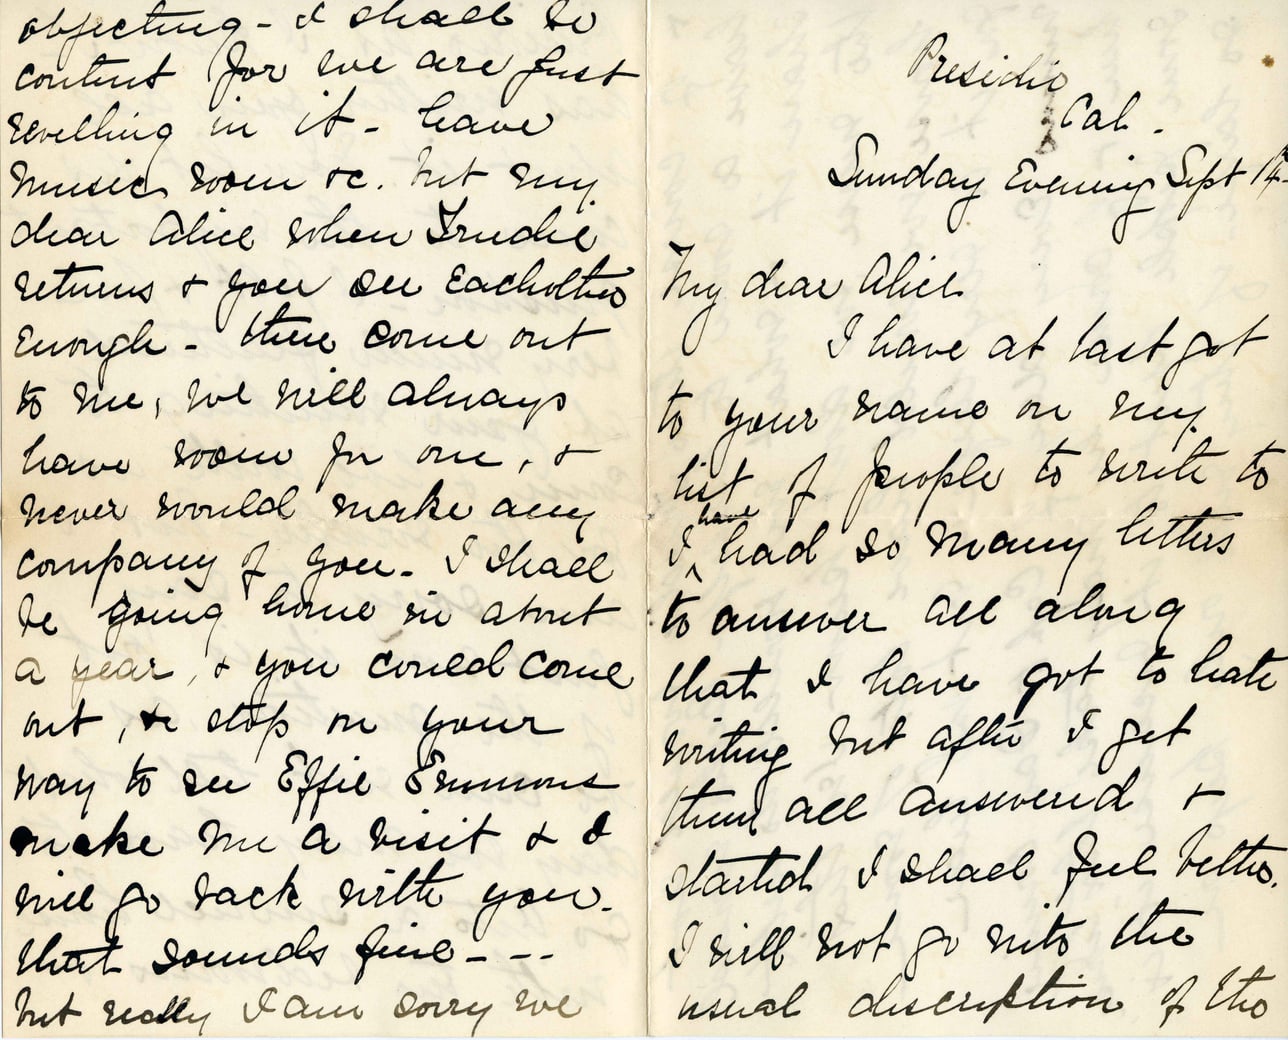 objecting - I shall be
content for we are just
revelling in it - have
music room &c. but my
dear Alice when Trudie
returns & you see eachother
enough - then come out
to me, we will always
have room for one, &
never would make any
company of you - I shall
be going home in about
a year, & you could come
out, & stop on your
way to see Effie Emmons
make me a visit & I
will go back with you -
that sounds fine - - -
but really I am sorry we
Presidio
Cal.
Sunday Evening Sept 14
My dear Alice
I have at last got
to your name on my
list of people to write to
I have had so many letters
to answer all along
that I have got to hate
writing but after I get
them all answered &
started I shall feel better.
I will not go into the
usual description of the